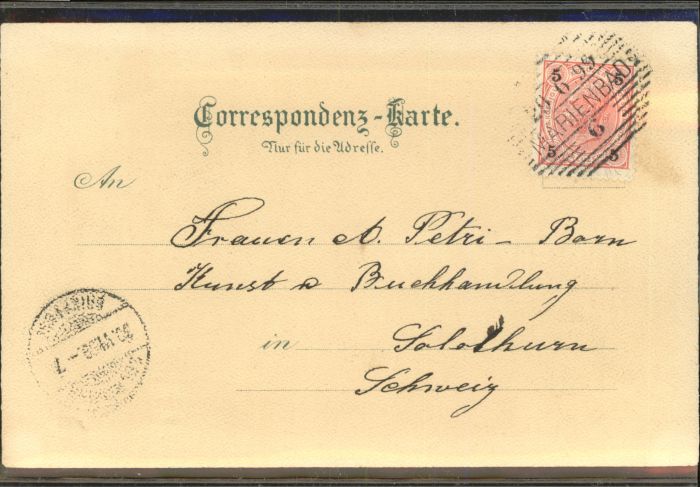 Correspondenz-Karte.
Nur für die Adresse.
5 5
5 5
6 99
MARIENBAD
6
An
Frauen A. Petri-Born
Kunst & Buchhandlung
in Solothurn
Schweiz